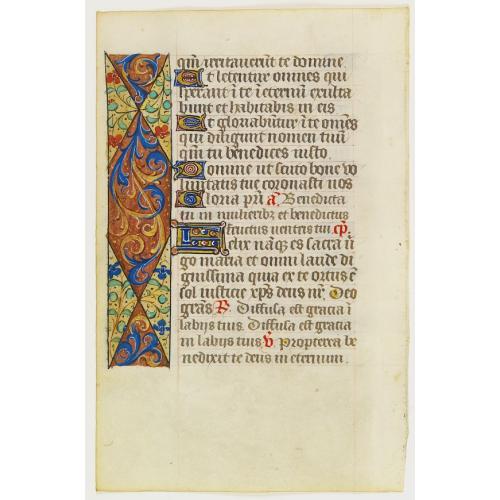 qm̄ irritauerūt te domine
Et letentur omnes qui
sperant ī te ī eternū exulta
bunt et habitabis in eis
Et gloriabūtur ī te om̄es
qui diligunt nomen tuū
qm̄ tu benedices iusto
Domine ut scuto bone vo
luntatis tue coronasti nos
Gloria pr̄i a̅ Benedicta
tu in mulieribꝫ et benedictus
fructus uentris tui cp̄.
Felix nāqꝫ es sacra ū
go maria et omni laude di
gnissima quia ex te ortus ē
sol iusticie xp̄s deus nr̄. Deo
grās R̷ Diffusa est gracia ī
labijs tuis. Diffusa est gracia
in labijs tuis v̷ Propterea be
nedixit te deus in eternum.